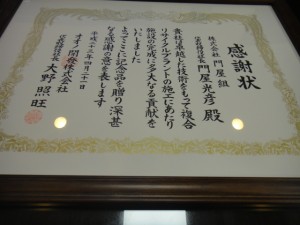 感謝状
株式会社 門屋組
代表取締役 門屋光彦 殿
貴社は卓越した技術をもって複合
リサイクルプラントの施工にあたり
施設の完成に多大なる貢献を
いたしました
よってここに記念品を贈り深甚
なる感謝の意を表します
平成二十三年四月二十二日
オオノ開發株式会社
代表取締役 大野照旺